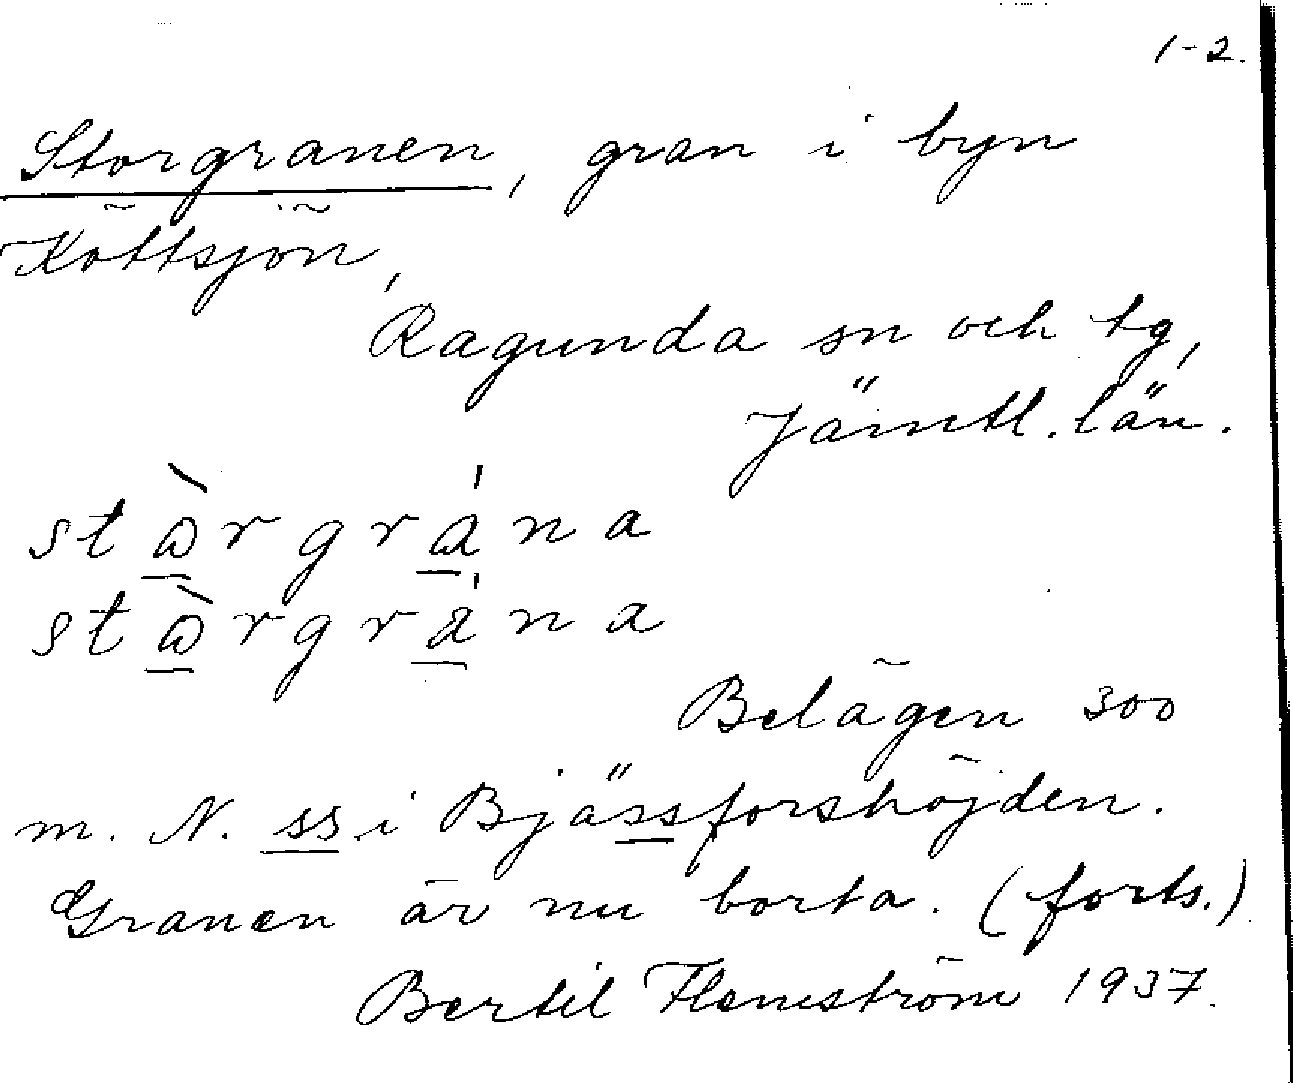 1-2.
Storgranen, gran i byn
Köttsjön,
Ragunda sn och tg,
Jämtl. län.
stꞷ̀rgrána
stꞷ̀rgrána
Belägen 300
m. N. ss i Bjässforshöjden.
Granen är nu borta. (forts.)
Bertil Flemström 1937.